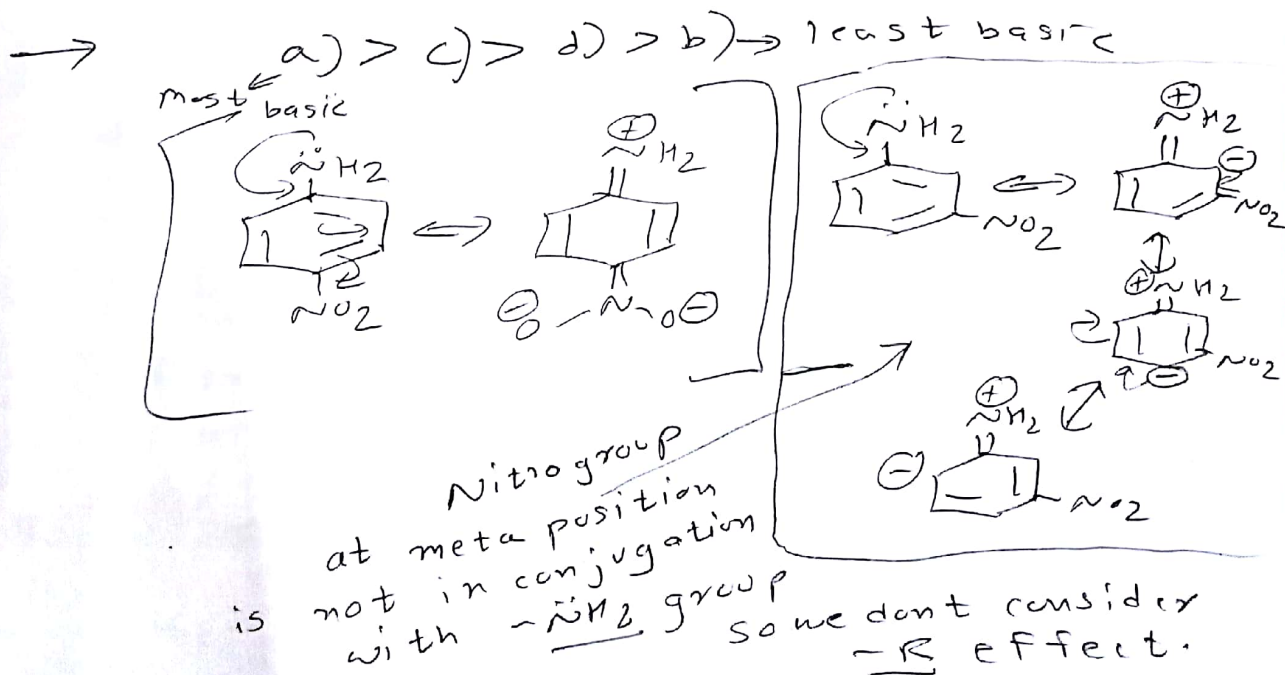 → a) > c) > d) > b) → least basic
most basic
N̈H2
NO2
⊕
NH2
N
⊖ O
O ⊖
N̈H2
NO2
⊕
NH2
⊖
NO2
⊕ NH2
NO2
⊖
⊕
NH2
⊖
NO2
Nitro group
at meta position
is not in conjugation
with -N̈H2 group
so we dont consider
-R effect.